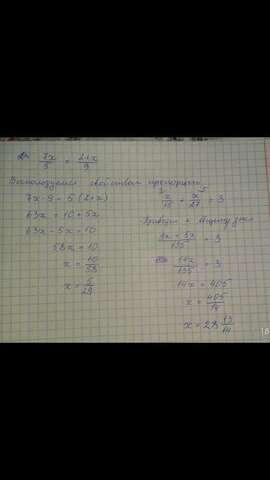 7x/5 = 2+x/9
Воспользуемся свойством пропорции
7x·9 = 5(2+x)
63x = 10+5x
63x - 5x = 10
58x = 10
x = 10/58
x = 5/29
x/15 + x/27 = 3
135 = 3
14x/135 = 3
14x = 405
x = 405/14
x = 28 13/14